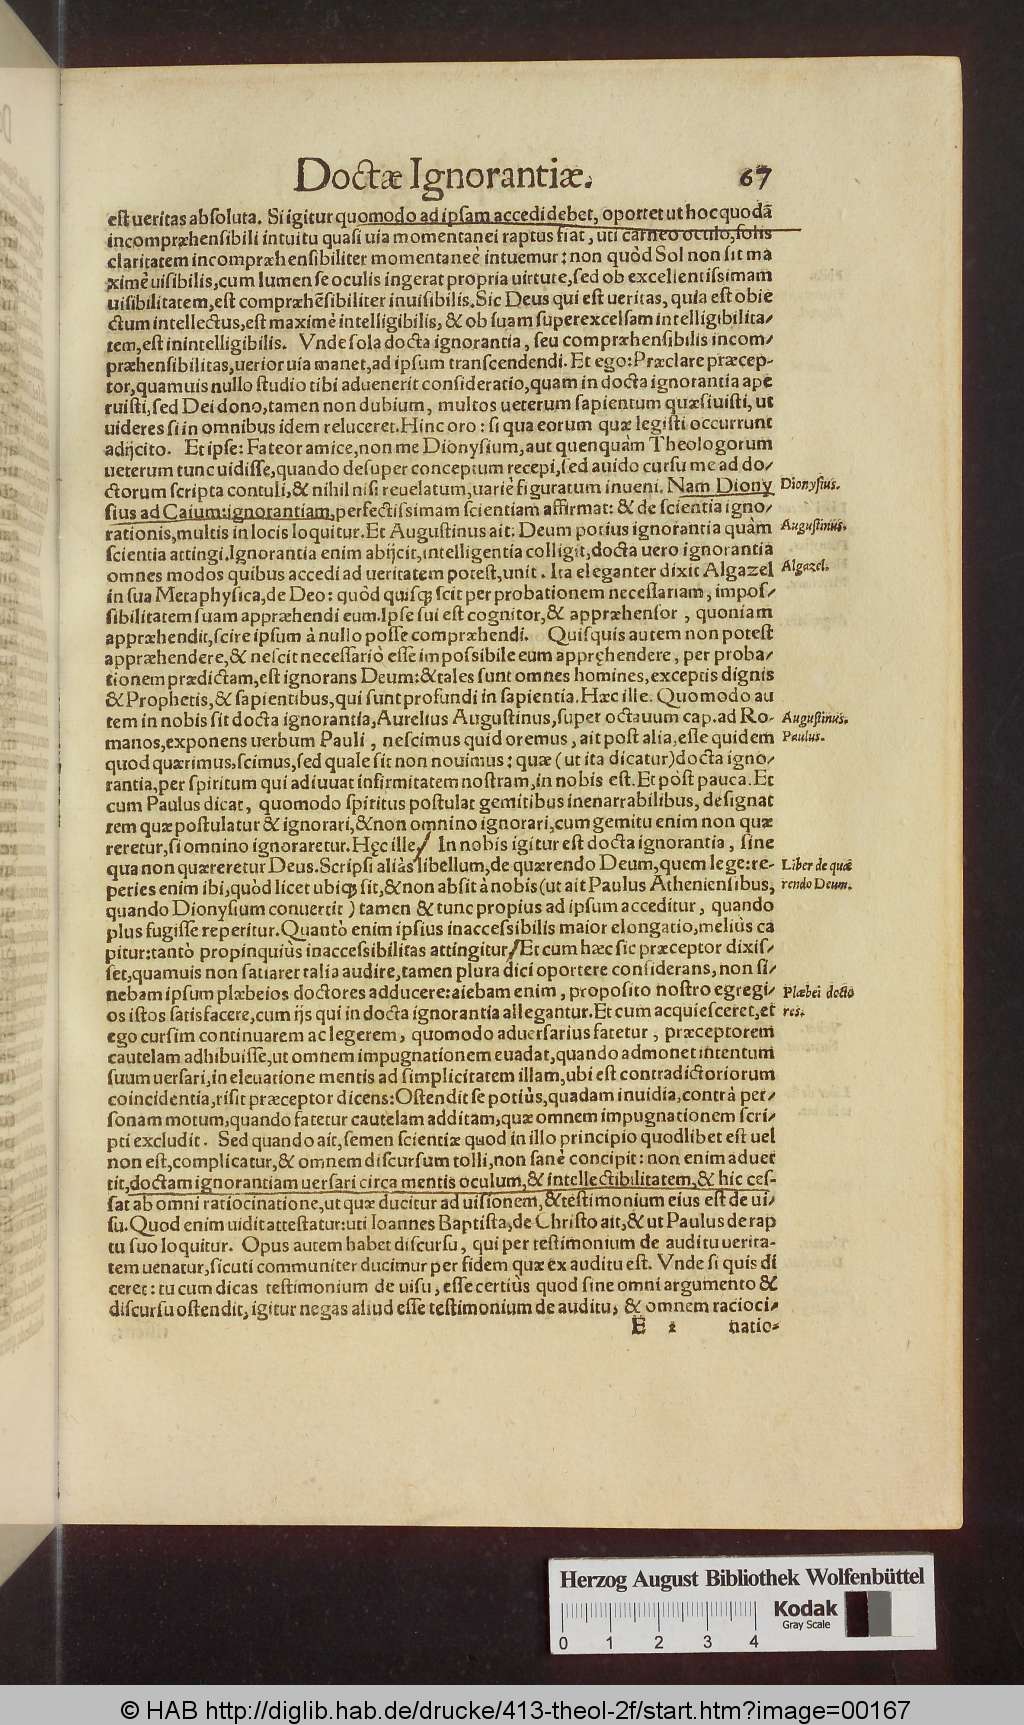 Doctæ Ignorantiæ. 67
eſt ueritas abſoluta. Si igitur quomodo ad ipſam accedi debet, oportet ut hoc quodã
incompræhenſibili intuitu quaſi uia momentanei raptus fiat, uti carneo oculo, ſolis
claritatem incompræhenſibiliter momentaneè intuemur: non quòd Sol non ſit ma
ximè uiſibilis, cum lumen ſe oculis ingerat propria uirtute, ſed ob excellentiſsimam
uiſibilitatem, eſt compræhẽſibiliter inuiſibilis. Sic Deus qui eſt ueritas, quia eſt obie
ctum intellectus, eſt maximè intelligibilis, & ob ſuam ſuperexcelſam intelligibilita⸗
tem, eſt inintelligibilis. Vnde ſola docta ignorantia, ſeu compræhenſibilis incom⸗
præhenſibilitas, uerior uia manet, ad ipſum tranſcendendi. Et ego: Præclare præcep⸗
tor, quamuis nullo ſtudio tibi aduenerit conſideratio, quam in docta ignorantia ape
ruiſti, ſed Dei dono, tamen non dubium, multos ueterum ſapientum quæſiuiſti, ut
uideres ſi in omnibus idem reluceret. Hinc oro: ſi qua eorum quæ legiſti occurrunt
adijcito. Et ipſe: Fateor amice, non me Dionyſium, aut quenquàm Theologorum
ueterum tunc uidiſſe, quando deſuper conceptum recepi, ſed auido curſu me ad do⸗
ctorum ſcripta contuli, & nihil niſi reuelatum, uariè figuratum inueni. Nam Diony
ſius ad Caium: ignorantiam, perfectiſsimam ſcientiam affirmat: & de ſcientia igno⸗
rationis, multis in locis loquitur. Et Auguſtinus ait: Deum potius ignorantia quàm
ſcientia attingi. Ignorantia enim abijcit, intelligentia colligit, docta uero ignorantia
omnes modos quibus accedi ad ueritatem poteſt, unit. Ita eleganter dixit Algazel
in ſua Metaphyſica, de Deo: quòd quiſq; ſcit per probationem neceſſariam, impoſ⸗
ſibilitatem ſuam appræhendi eum. Ipſe ſui eſt cognitor, & appræhenſor, quoniam
appræhendit, ſcire ipſum à nullo poſſe compræhendi. Quiſquis autem non poteſt
appræhendere, & neſcit neceſſariò eſſe impoſsibile eum appręhendere, per proba⸗
tionem prædictam, eſt ignorans Deum: & tales ſunt omnes homines, exceptis dignis
& Prophetis, & ſapientibus, qui ſunt profundi in ſapientia. Hæc ille. Quomodo au
tem in nobis ſit docta ignorantia, Aurelius Auguſtinus, ſuper octauum cap. ad Ro⸗
manos, exponens uerbum Pauli, neſcimus quid oremus, ait poſt alia, eſſe quidem
quod quærimus, ſcimus, ſed quale ſit non nouimus: quæ (ut ita dicatur) docta igno⸗
rantia, per ſpiritum qui adiuuat infirmitatem noſtram, in nobis eſt. Et pòſt pauca. Et
cum Paulus dicat, quomodo ſpiritus poſtulat gemitibus inenarrabilibus, deſignat
rem quæ poſtulatur & ignorari, & non omnino ignorari, cum gemitu enim non quæ
reretur, ſi omnino ignoraretur. Hęc ille. / In nobis igitur eſt docta ignorantia, ſine
qua non quæreretur Deus. Scripſi aliàs libellum, de quærendo Deum, quem lege: re⸗
peries enim ibi, quòd licet ubiq; ſit, & non abſit à nobis (ut ait Paulus Athenienſibus,
quando Dionyſium conuertit) tamen & tunc propius ad ipſum acceditur, quando
plus fugiſſe reperitur. Quantò enim ipſius inacceſsibilis maior elongatio, meliùs ca
pitur: tantò propinquiùs inacceſsibilitas attingitur. / Et cum hæc ſic præceptor dixiſ⸗
ſet, quamuis non ſatiaret talia audire, tamen plura dici oportere conſiderans, non ſi⸗
nebam ipſum plæbeios doctores adducere: aiebam enim, propoſito noſtro egregi⸗
os iſtos ſatisfacere, cum ijs qui in docta ignorantia allegantur. Et cum acquieſceret, et
ego curſim continuarem ac legerem, quomodo aduerſarius fatetur, præceptorem
cautelam adhibuiſſe, ut omnem impugnationem euadat, quando admonet intentum
ſuum uerſari, in eleuatione mentis ad ſimplicitatem illam, ubi eſt contradictoriorum
coincidentia, riſit præceptor dicens: Oſtendit ſe potiùs, quadam inuidia, contrà per⸗
ſonam motum, quando fatetur cautelam additam, quæ omnem impugnationem ſcri⸗
pti excludit. Sed quando ait, ſemen ſcientiæ quod in illo principio quodlibet eſt uel
non eſt, complicatur, & omnem diſcurſum tolli, non ſanè concipit: non enim aduer
tit, doctam ignorantiam uerſari circa mentis oculum, & intellectibilitatem, & hic ceſ⸗
ſat ab omni ratiocinatione, ut quæ ducitur ad uiſionem, & teſtimonium eius eſt de ui⸗
ſu. Quod enim uidit atteſtatur: uti Ioannes Baptiſta, de Chriſto ait, & ut Paulus de rap
tu ſuo loquitur. Opus autem habet diſcurſu, qui per teſtimonium de auditu uerita⸗
tem uenatur, ſicuti communiter ducimur per fidem quæ ex auditu eſt. Vnde ſi quis di
ceret: tu cum dicas teſtimonium de uiſu, eſſe certiùs quod ſine omni argumento &
diſcurſu oſtendit, igitur negas aliud eſſe teſtimonium de auditu, & omnem ratioci⸗
E 2 natio⸗
Dionyſius.
Auguſtinus.
Algazel.
Auguſtinus.
Paulus.
Liber de quæ
rendo Deum.
Plæbei docto
res.
Herzog August Bibliothek Wolfenbüttel
Kodak
Gray Scale
0 1 2 3 4
© HAB http://diglib.hab.de/drucke/413-theol-2f/start.htm?image=00167